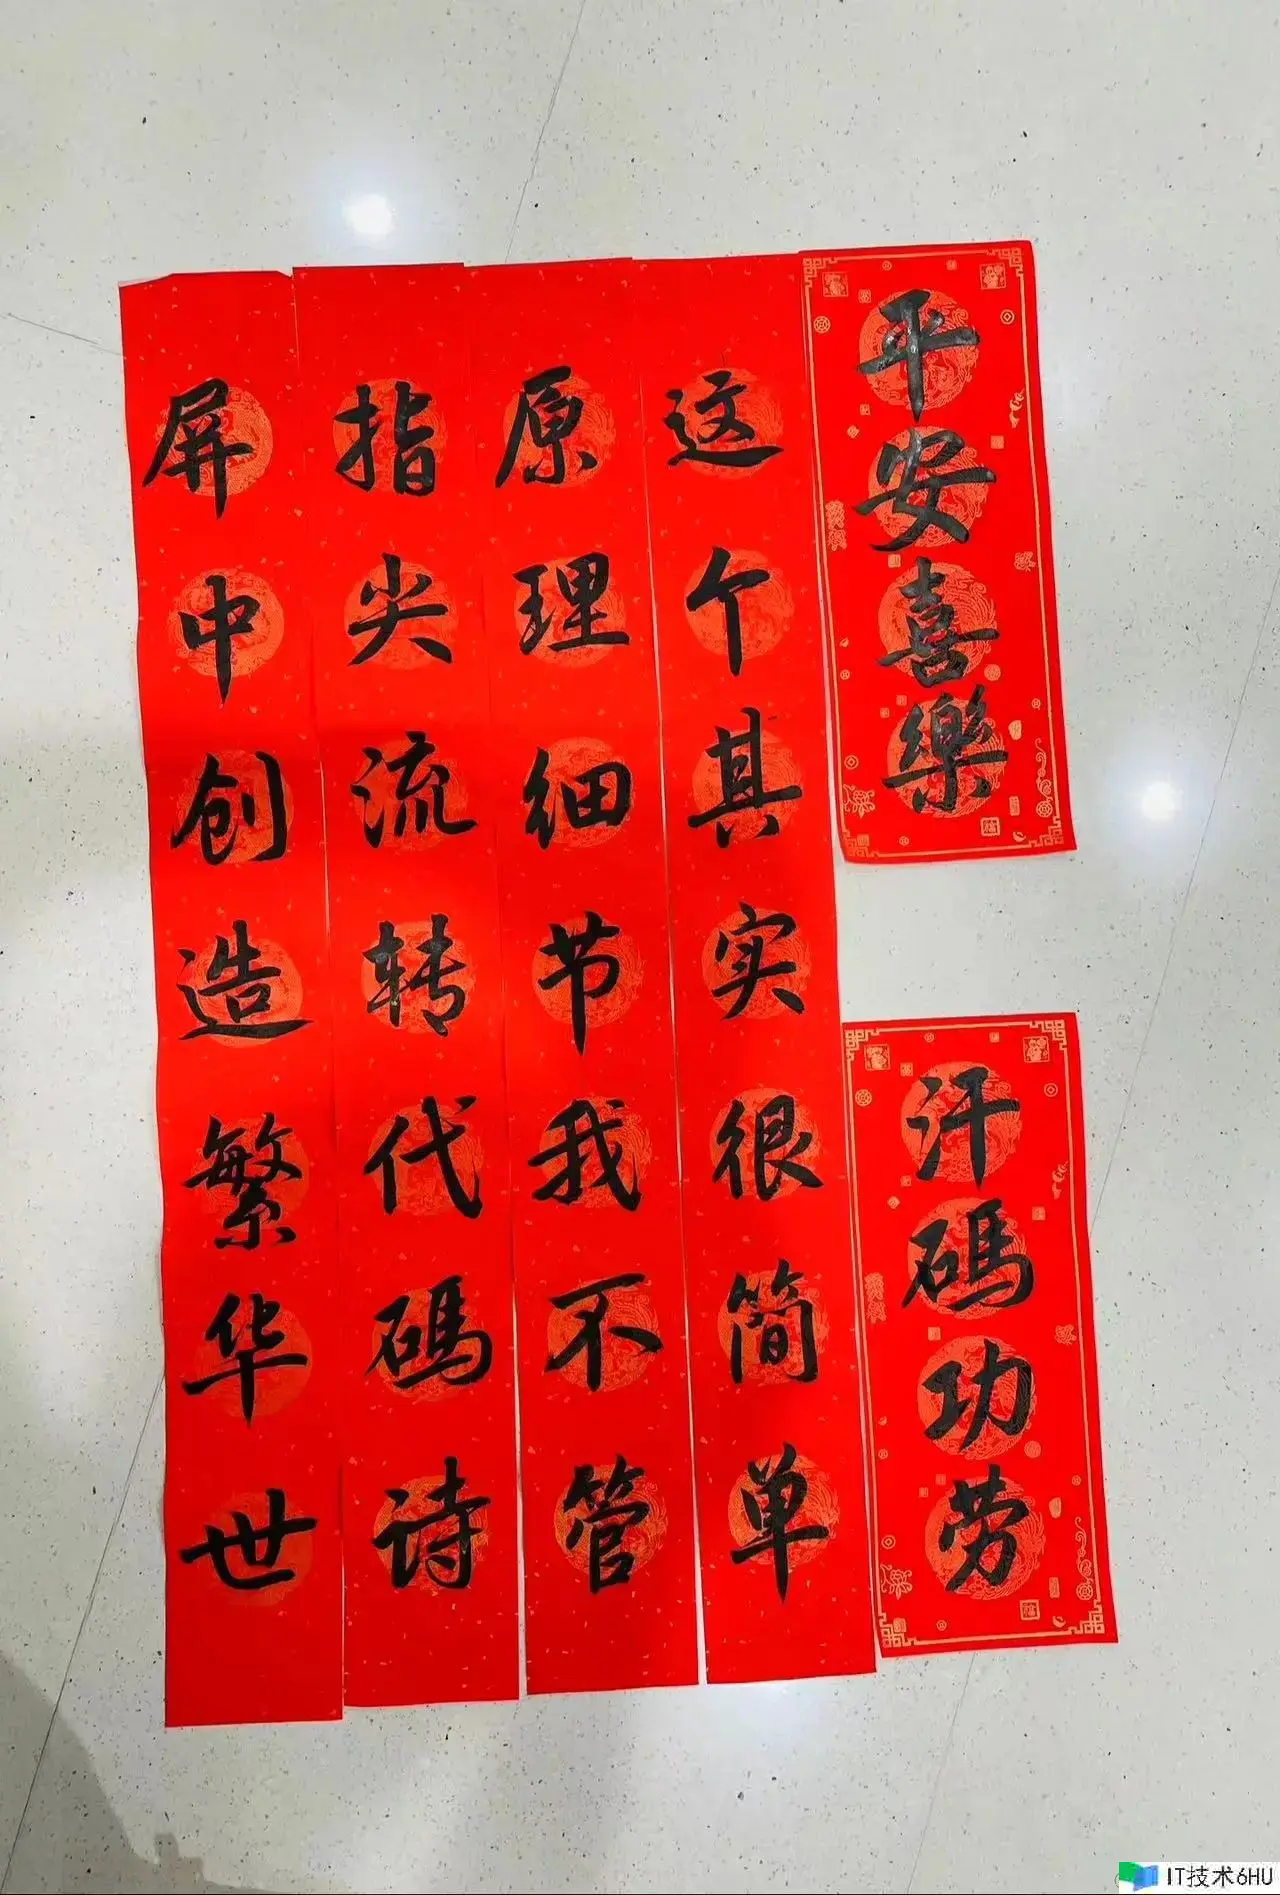 平安喜樂
汗碼功劳
这个其实很简单
原理细节我不管
指尖流转代碼诗
屏中创造繁华世
IT技术6HU